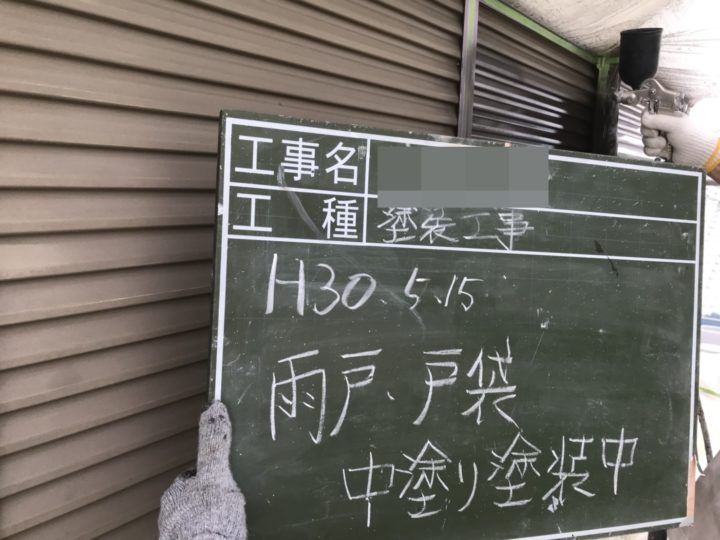 工事名
工種 塗装工事
H30.5.15
雨戸、戸袋
中塗り塗装中